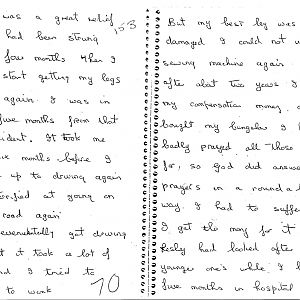 was a great relief
had been strung 153
four months when I
start getting my legs
again. I was in
five months from that
ident. It took me
months before I
up to driving again
terrified at going on
road again
evenutally get driving
it took a lot of
I tried to
to work 70
But my best leg was
damaged I could not u
sewing machine again.
after about two years I
my compensation money.
bought my bungalow I h
badly prayed all those
for, so God did answe
prayers in a roundabo
way. I had to suffe
I get the money for it
Lesley had looked after
younger one's while I
five months in hospital